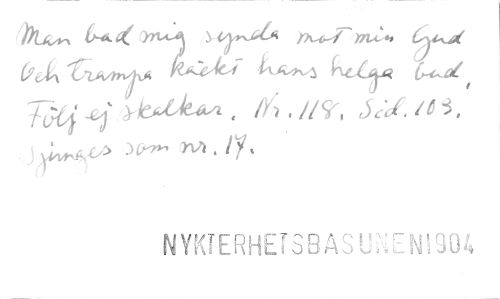 Man bad mig synda mot min Gud
Och trampa käckt hans helga bud,
Följ ej skalkar. Nr. 118. Sid. 103.
Sjunges som nr. 17.
NYKTERHETSBASUNEN 1904